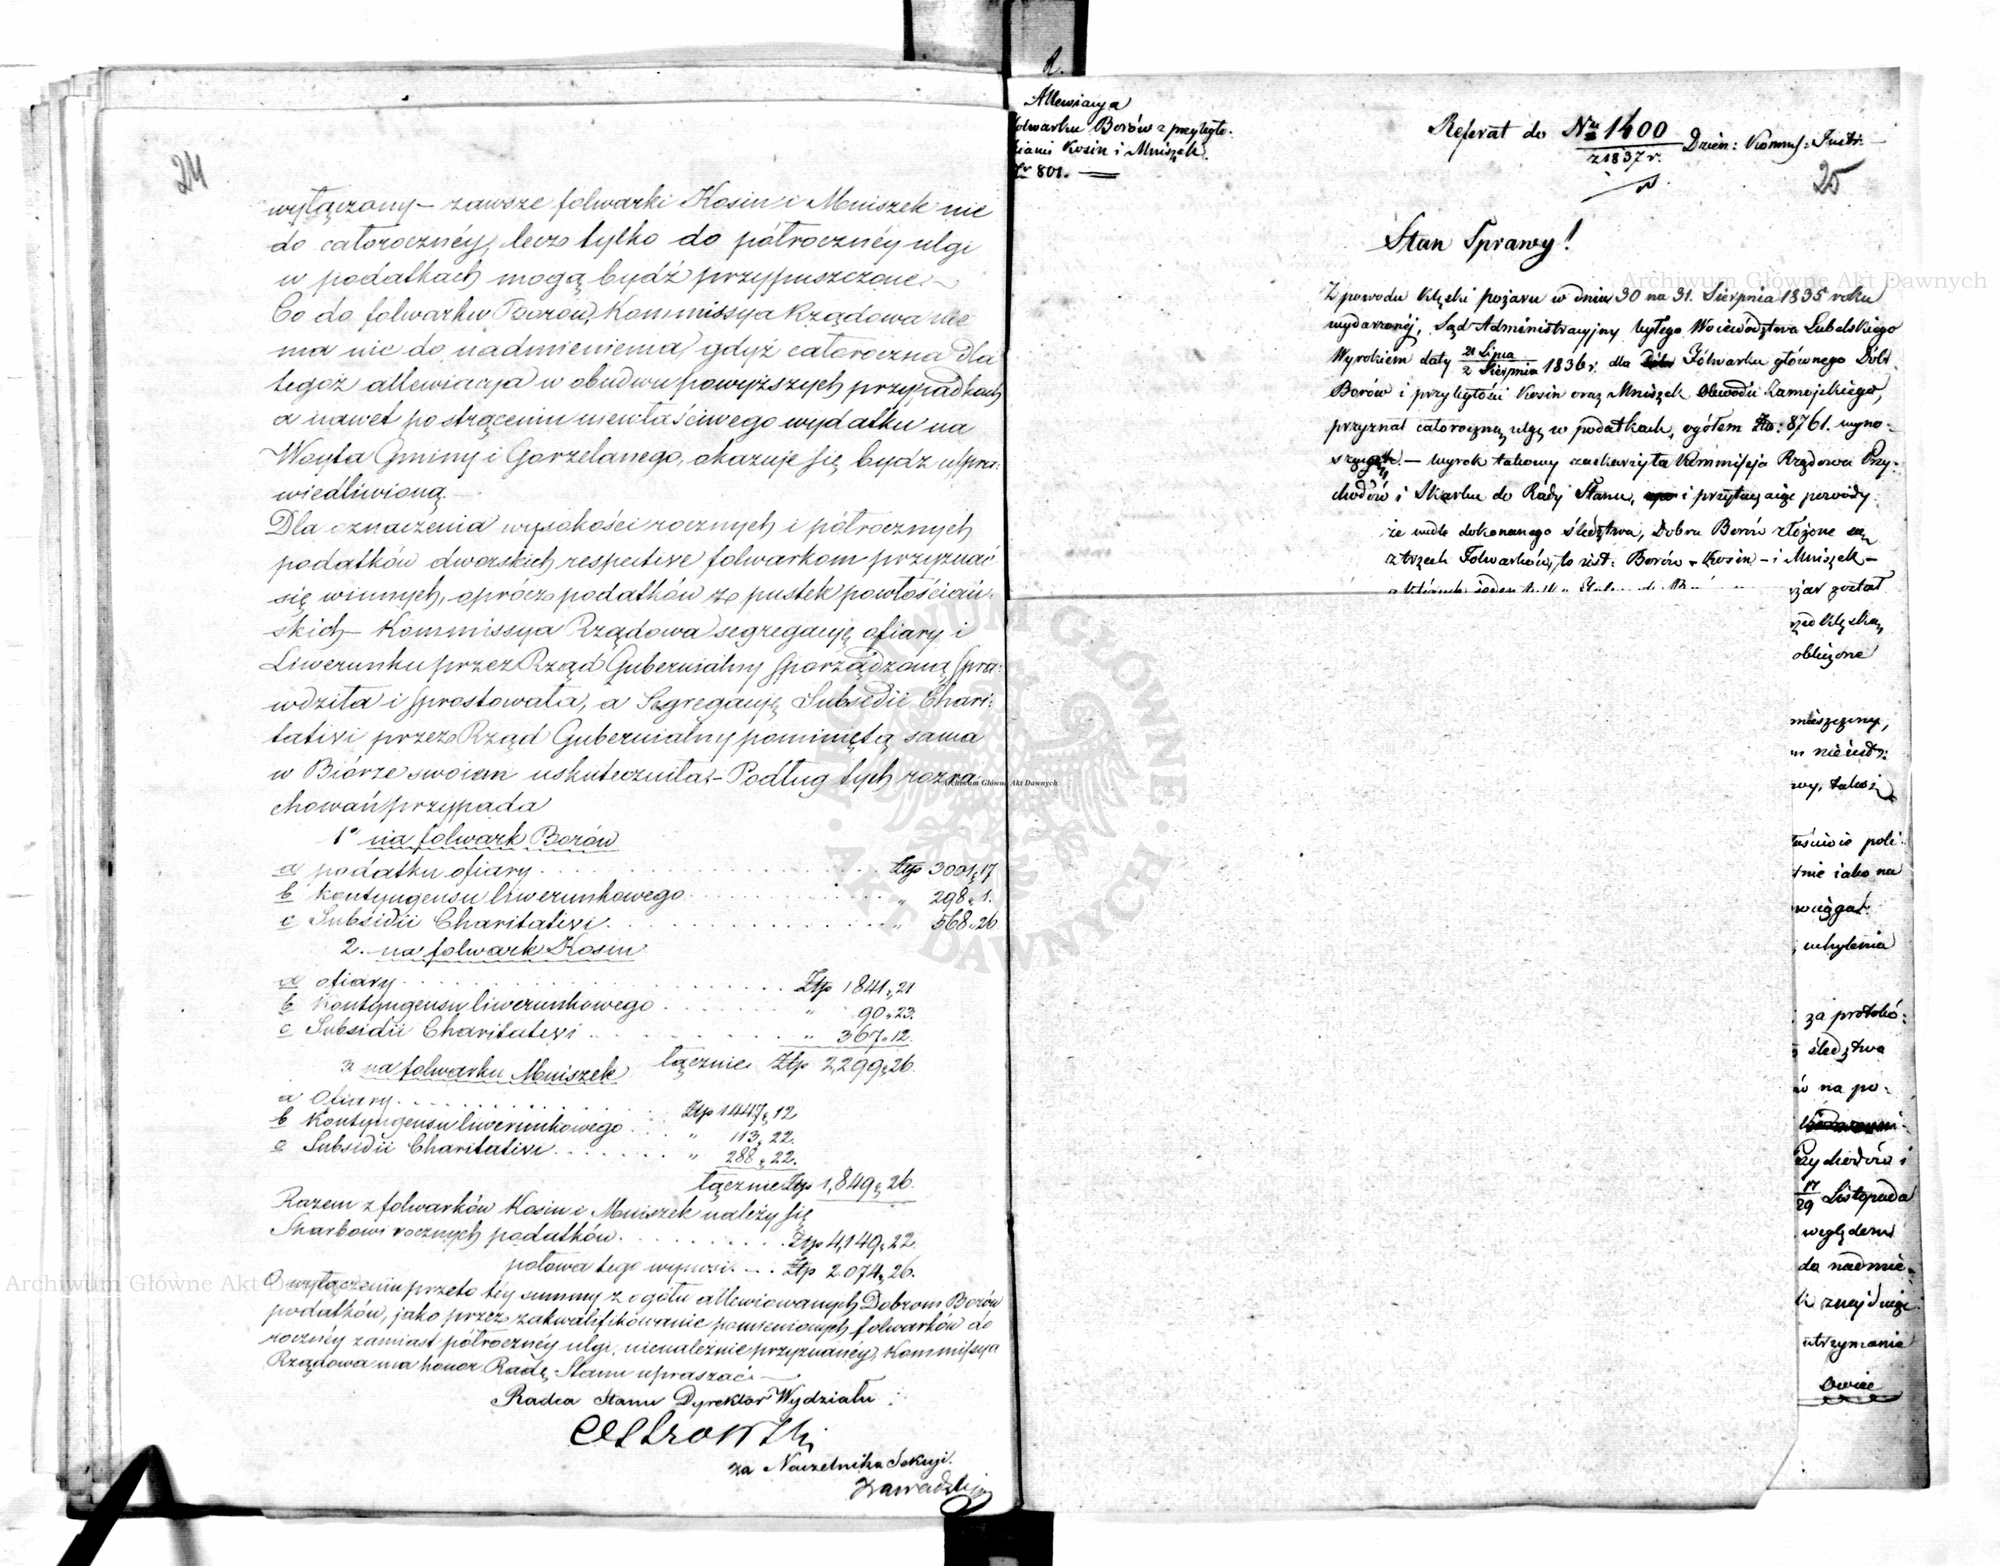 24
wyłączony – zawsze folwarki Kosin i Mniszek nie
do całorocznéy, lecz tylko do półrocznéy ulgi
w podatkach mogą bydź przypuszczone. –
Co do folwarku Borów, Kommissya Rządowa nie
ma nic do nadmienienia, gdyż całoroczna dla
tegoż allewiacya w obudwu powyższych przypadkach
a nawet po strąceniu niewłaściwego wydatku na
Woyta Gminy i Gorzelanego, okazuje się bydź uspra:
wiedliwioną. –
Dla oznaczenia wysokości rocznych i półrocznych
podatków dworskich respective folwarkom przyznać
się winnych, oprócz podatków z pustek powłościań:
skich – Kommissya Rządowa segregacyę ofiary i
Liwerunku przez Rząd Gubernialny sporządzoną spra:
wdziła i sprostowała, a Segregacyę Subsidii Chari:
tativi przez Rząd Gubernialny pominiętą sama
w Biórze swoiem uskuteczniła. – Podług tych rozra
chowań przypada
1º na folwark Borów
a podatku ofiary . . . Złp 3001 „ 17
b kontyngensu liwerunkowego . . . „ 298 „ 1.
c Subsidii Charitativi . . . „ 568 „ 26
2. na folwark Kosin
a ofiary . . . Złp 1841 „ 21
b Kontyngensu liwerunkowego . . . „ 90 „ 23.
c Subsidii Charitativi . . . „ 367 „ 12.
łącznie Złp 2,299 „ 26.
3 na folwarku Mniszek
a Ofiary . . . Złp 1447 „ 12
b Kontyngensu liwerunkowego . . . „ 113 „ 22.
c Subsidii Charitativi . . . „ 288 „ 22.
łącznie Złp 1,849 „ 26.
Razem z folwarków Kosin i Mniszek należy się
Skarbowi rocznych podatków . . . Złp 4,149 „ 22.
połowa tego wynosi . . . Złp 2.074 „ 26.
O wyłączenie przeto téy summy z ogółu allewiowanych Dobrom Borów
podatków, jako przez zakwalifikowanie pomienionych folwarków do
rocznéy zamiast półrocznéy ulgi, nienależnie przyznanéy, Kommissya
Rządowa ma honor Radę Stanu upraszać. –
Radca Stanu Dyrektor Wydziału
za Naczelnika Sekcyi.
Zawadzki
Allewiacya
folwarku Borów z przyległo:
ściami Kosin i Mniszek.
Nr 801. –
Referat do Nru 1400 Dzien: Kommss: Instr. –
z 1837 r.
25
Stan Sprawy!
Z powodu klęski pożaru w dniu 30 na 31. Sierpnia 1835 roku
wydarzonéj, Sąd Administracyjny byłego Województwa Lubelskiego
Wyrokiem daty 21 Lipca / 2 Sierpnia 1836 r. dla Fólwarku głównego Dóbr
Borów i przyległości Kosin oraz Mniszek Obwodu Zamojskiego,
przyznał całoroczną ulgę w podatkach, ogółem Złp: 8761. wyno:
szącą. – wyrok takowy zaskarżyła Kommissja Rządowa Przy:
chodów i Skarbu do Rady Stanu, i przytaczając powody
że wedle dokonanego śledztwa, Dobra Borów złożone są
z trzech Folwarków, to iest: Borów – Kosin – i Mniszek –
pożar został
przed klęską
obliczone
mieszczny,
takoż
poli:
tnie iako na
wciągać
uchylenia
za protokó:
śledztwa
na po:
Przychodów i
17/29 Listopada
względem
do nadmie:
znajduje
utrzymanie
Owiec
Archiwum Główne Akt Dawnych
Archiwum Główne Akt Dawnych
Archiwum Główne Akt Dawnych
ARCHIWUM GŁÓWNE · AKT DAWNYCH ·